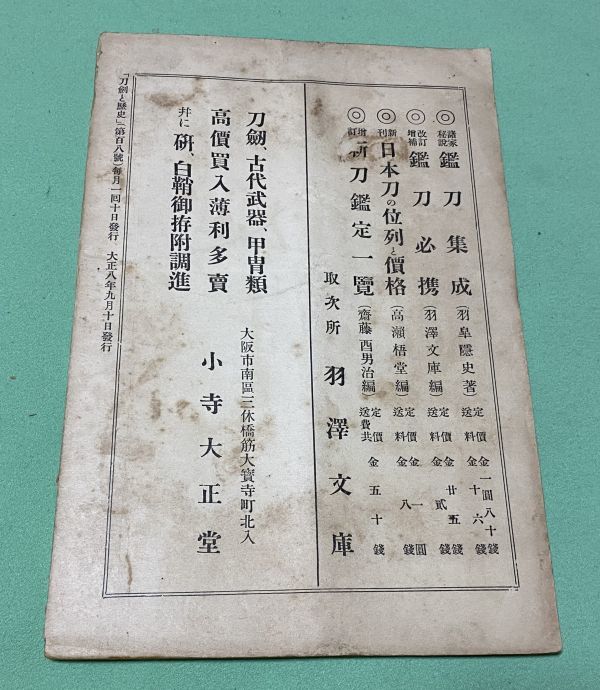 ◎諸家秘説 鑑刀集成（羽皐隱史著）定價金一圓八十錢 送料金十六錢
◎改訂增補 鑑刀必携（羽澤文庫編）定價金廿五錢 送料金貳錢
◎新刊 日本刀の位列と價格（高瀬梧堂編）定價金一圓 送料金八錢
◎增訂 新刀鑑定一覽（齋藤酉男治編）定價送費共金五十錢
取次所 羽澤文庫
刀劔、古代武器、甲冑類
高價買入薄利多賣
幷に 研、白鞘御拵附調進
大阪市南區三休橋筋大寶寺町北入
小寺大正堂
「刀劍と歷史」（第百八號）每月一回十日發行 大正八年九月十日發行